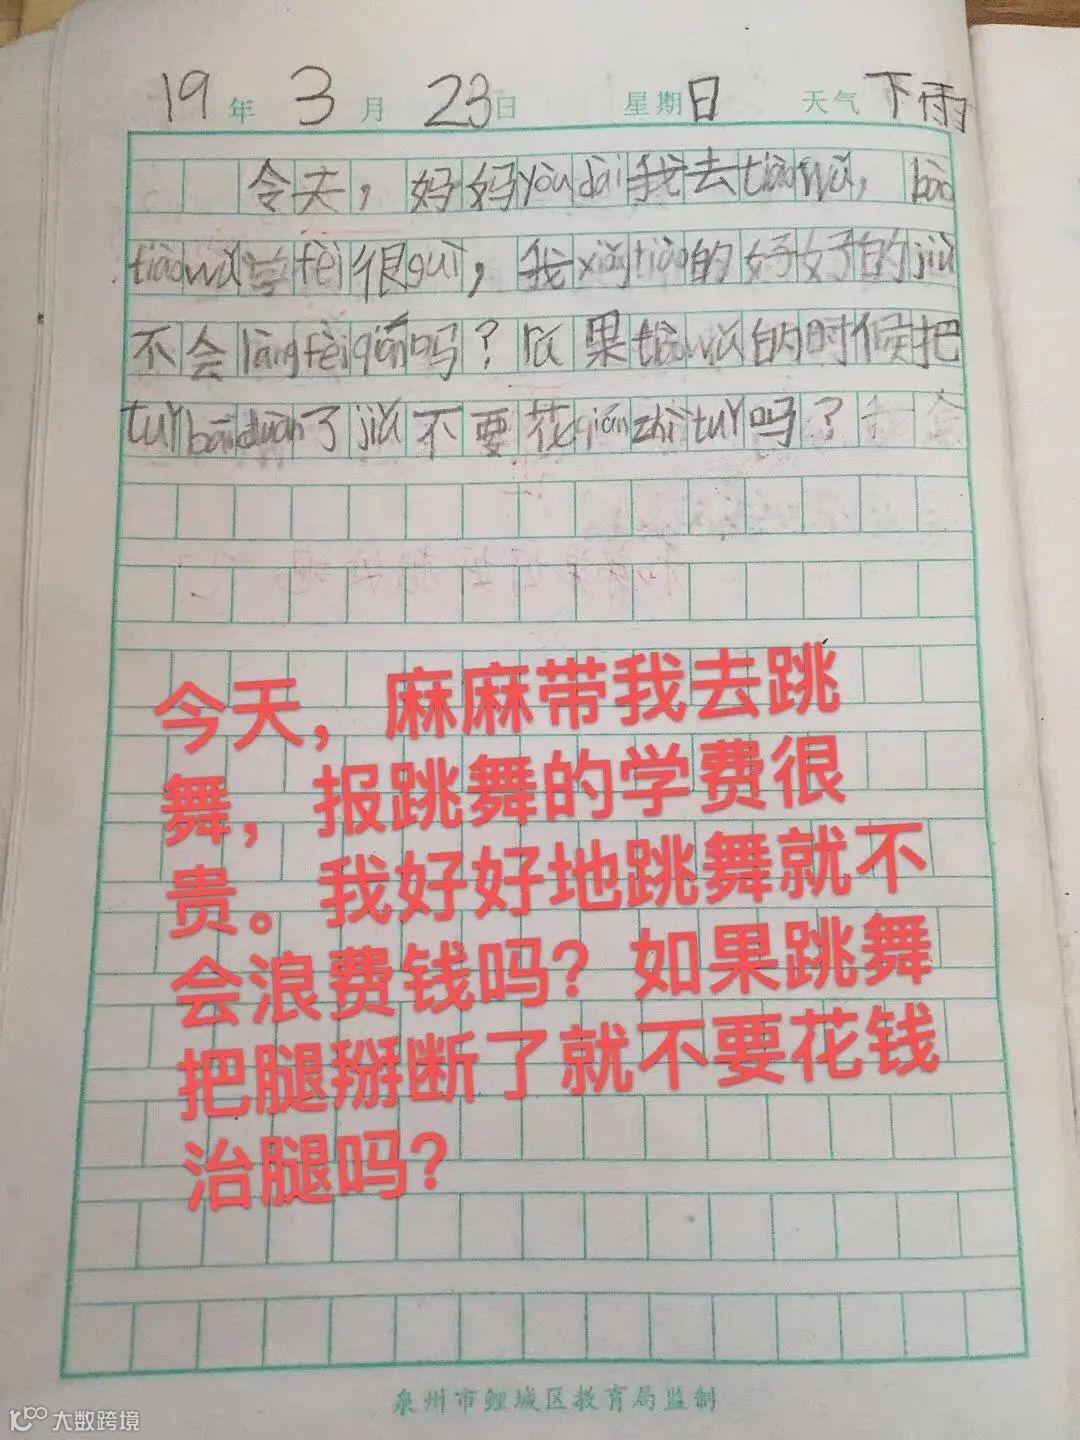 19年3月23日 星期日 天气下雨
今天，妈妈yòu dài我去tiàowǔ，bào
tiàowǔ学fèi很guì，我xiǎng tiào的好好的jiù
不会làngfèiqián吗？rú果tiàowǔ的时候把
tuǐ bāi duàn了jiù不要花qián zhì tuǐ吗？
今天，麻麻带我去跳
舞，报跳舞的学费很
贵。我好好地跳舞就不
会浪费钱吗？如果跳舞
把腿掰断了就不要花钱
治腿吗？
泉州市鲤城区教育局监制
大数跨境